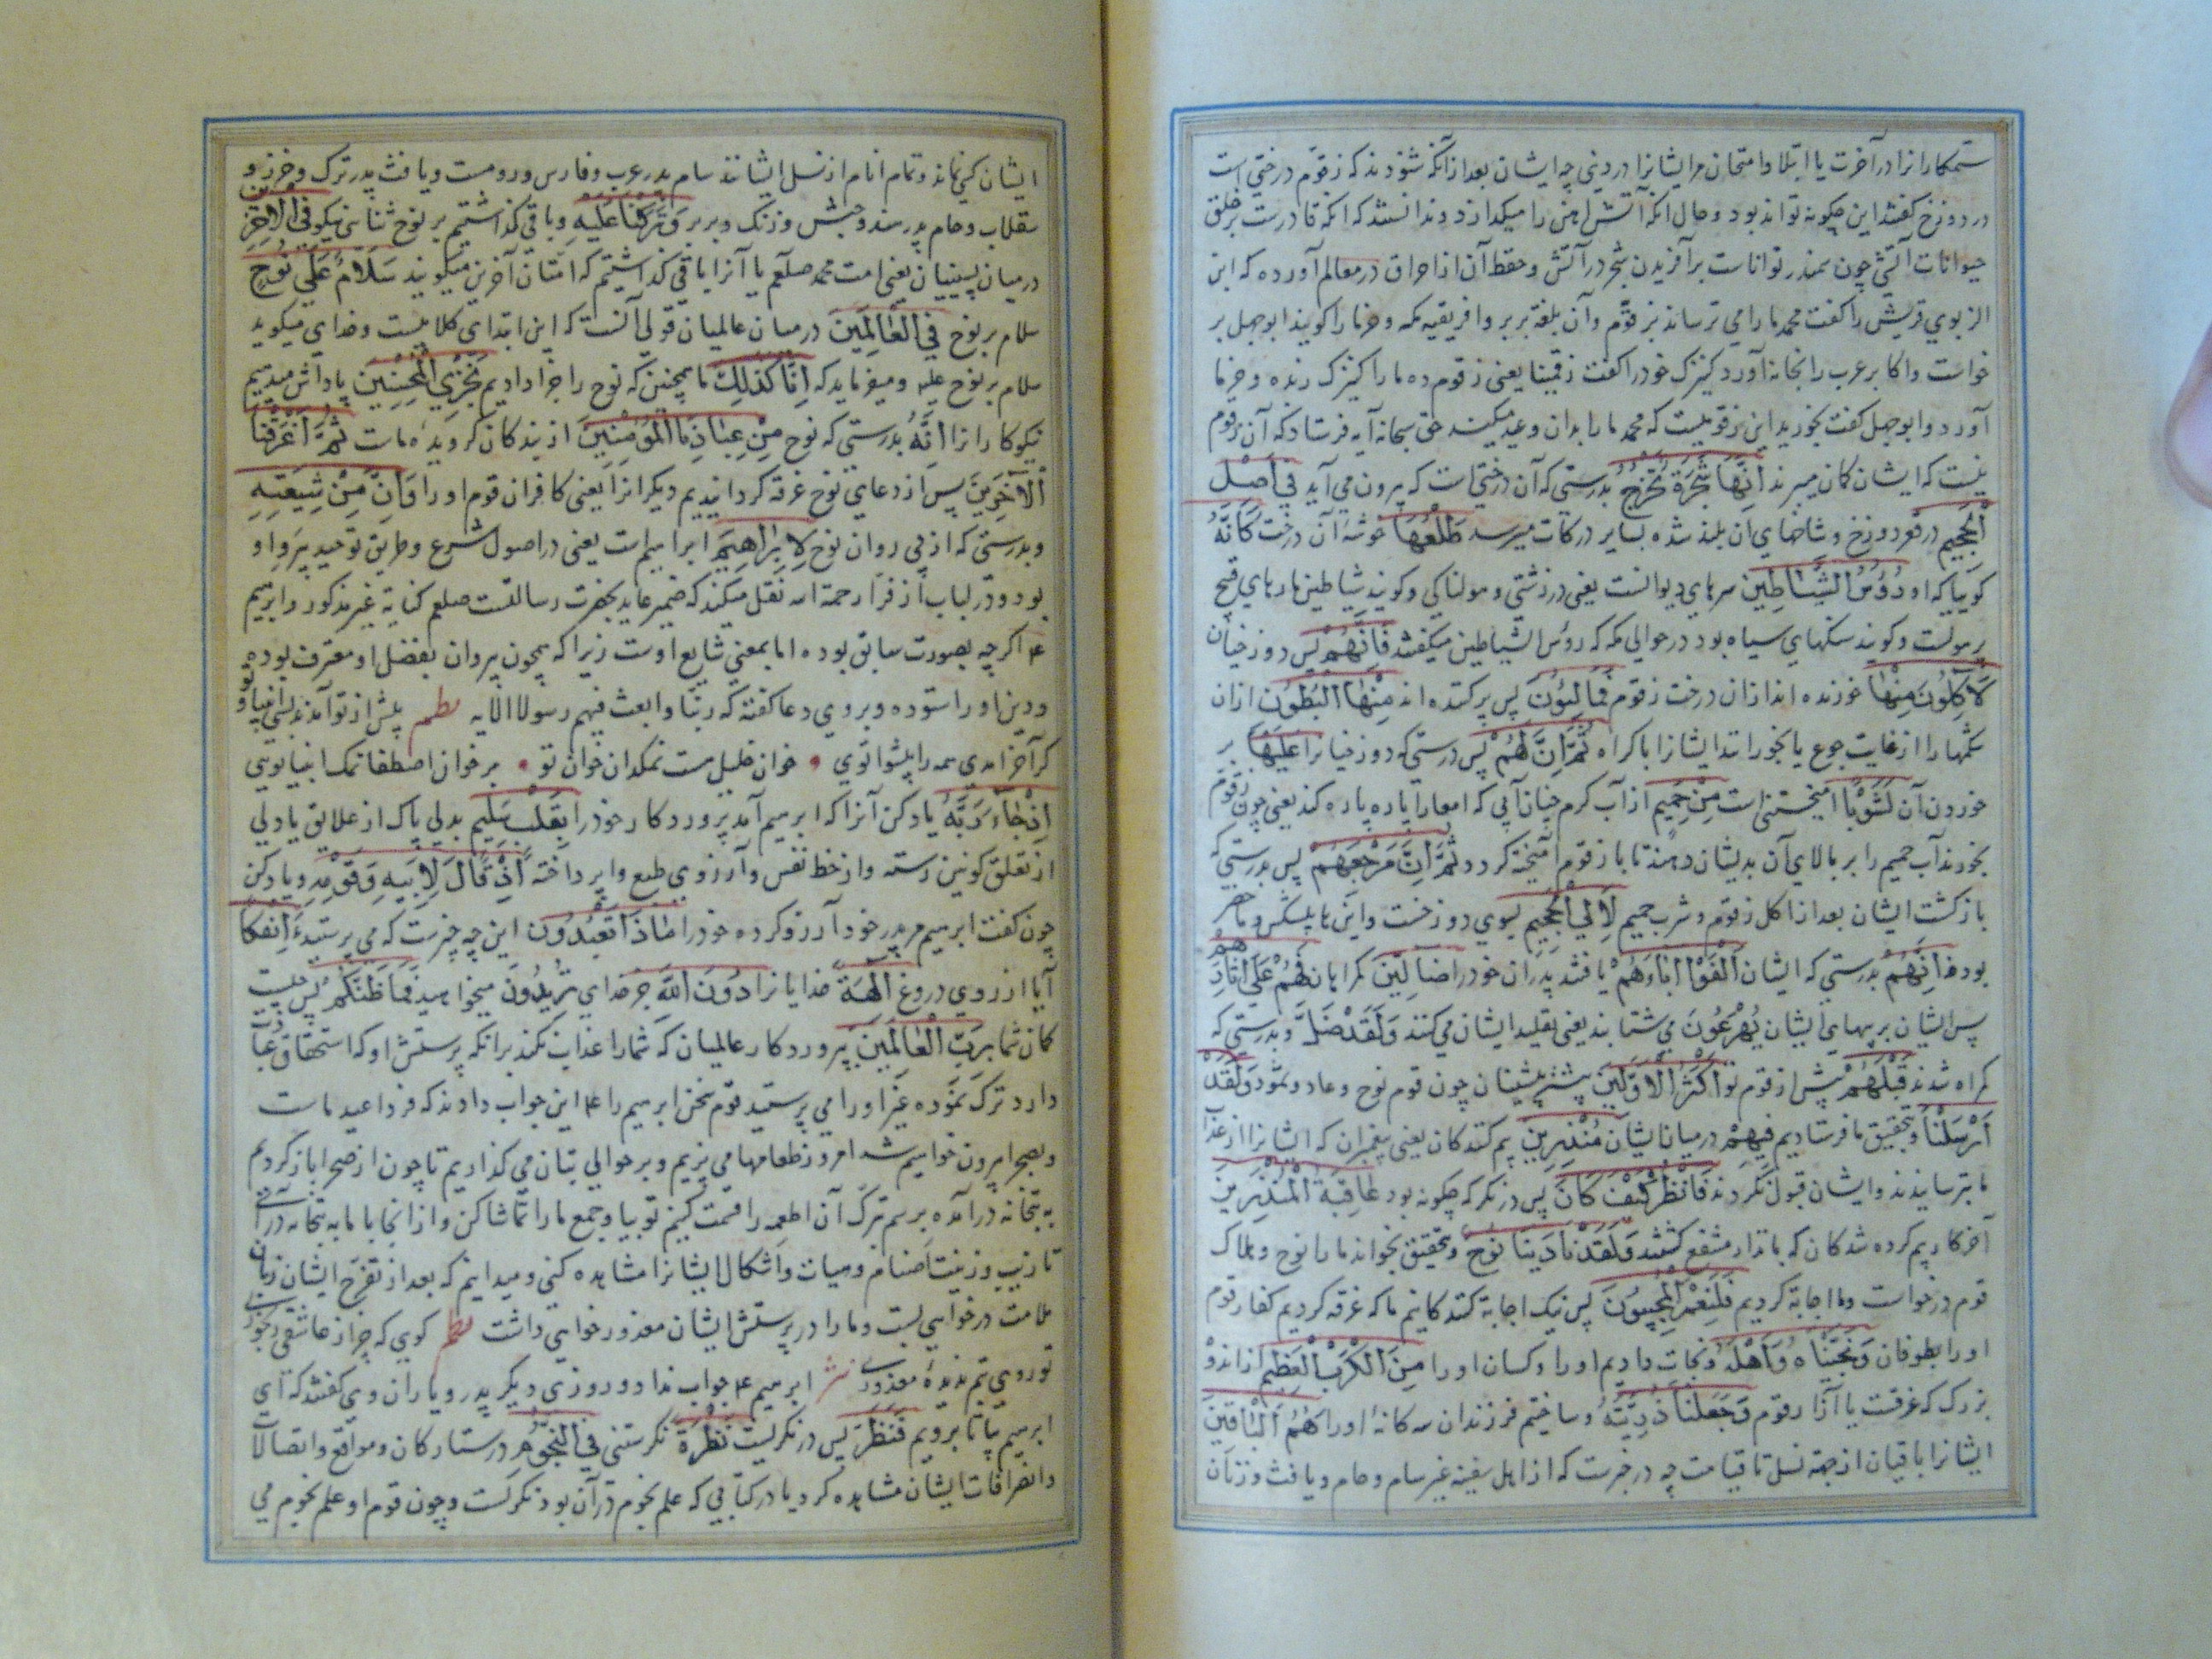 ستمکارانرا در آخرت یا ابتلا و امتحان مر ایشانرا در دنیی چه ایشان بعد از آنکه شنودند که زقوم درختی است
در دوزخ گفتند این چگونه تواند بود و حال انکه آتش اهن را میکدازد و ندانستند که انکه قادرست بر خلق
حیوانات آتشی چون سمندر تواناست بر آفریدن شجر در آتش و حفظ آن از احراق در معالم آورده که ابن
الزبوی قریش را کفت محمد ما را می ترساند بزقوم و آن بلغة بربر و افریقیه مکه و خرما را کویند ابو جهل بر
خواست و اکابر عرب را بخانه آورد کنیزک خود را کفت زقمینا یعنی زقوم ده ما را کنیزک زبده و خرما
آورد و ابو جهل کفت بخورید این زقومیست که محمد ما را بدان وعید میکند حق سبحانه آیه فرستاد که آن زقوم
نیست که ایشان کمان میبرند اِنَّهَا شَجَرَةٌ تَخْرُجُ بدرستی که آن درختی است که بیرون می آید فِي اَصْلِ
الْجَحِیمِ در قعر دوزخ و شاخهای آن بلند شده بسایر درکات میرسد طَلْعُهَا خوشهٔ آن درخت کَاَنَّهُ
کوییا که او رُؤُسُ الشَّیَاطِین سرهای دیوانست یعنی در زشتی و هولناکی و کویند شیاطین مارهای قبیح
پر هولست و کویند سنکهای سیاه بود در حوالی مکه که رؤس الشیاطین میکفتند فَاِنَّهُمْ پس دوزخیان
لَآکِلُونَ مِنْهَا خورنده اند از ان درخت زقوم فَمَالِئُونَ پس پر کننده اند مِنْهَا الْبُطُونَ از ان
شکمها را از غایت جوع یا بخورانند ایشانرا باکراه ثُمَّ اِنَّ لَهُمْ پس درستی که دوزخیانرا عَلَیْهَا بر
خوردن آن لَشَوْبًا امیختنی است مِنْ حَمِیمٍ از آب کرم چنان آبی که امعا را پاره پاره کند یعنی چون زقوم
بخورند آب حمیم را بر بالای آن بدیشان دهند تا با زقوم آمیخته کردد ثُمَّ اِنَّ مَرْجِعَهُمْ پس بدرستی که
بازکشت ایشان بعد از اکل زقوم و شرب حمیم لَاِلَی الْجَحِیمِ بسوی دوزخست و این ما پیشکش و ما حضر
بود اِنَّهُمْ بدرستی که ایشان اَلْفَوْا اٰبَاءَهُمْ یافتند پدران خود را ضَالِّینَ کمراهان فَهُمْ عَلَی اٰثَارِهِمْ
پس ایشان بر پیهای ایشان یُهْرَعُونَ می شتابند یعنی تقلید ایشان می کنند وَلَقَدْ ضَلَّ و بدرستی که
کمراه شدند قَبْلَهُمْ پیش از قوم تو اَکْثَرُ الْاَوَّلِینَ بیشتر پیشینیان چون قوم نوح و عاد و ثمود وَلَقَدْ
اَرْسَلْنَا و بتحقیق ما فرستادیم فِیهِمْ در میان ایشان مُنْذِرِینَ بیم کنندکان یعنی پیغمبران که ایشانرا از عذاب
ما بترسانیدند و ایشان قبول نکردند فَانْظُرْ کَیْفَ کَانَ پس در نکر که چکونه بود عَاقِبَةُ الْمُنْذَرِینَ
آخر کار بیم کرده شدکان که بانذار منتفع نکشتند وَلَقَدْ نَادَینَا نُوحٌ و بتحقیق بخواند ما را نوح و هلاک
قوم درخواست و ما اجابة کردیم فَلَنِعْمَ الْمُجِیبُونَ پس نیک اجابة کنندکانیم ما که غرقه کردیم کفار قوم
او را بطوفان وَنَجَّیْنَاهُ وَاَهْلَهُ و نجات دادیم او را و کسان او را مِنَ الْکَرْبِ الْعَظِیمِ از اندوه
بزرک که غرقست یا آزار قوم وَجَعَلْنَا ذُرِّیَّتَهُ و ساختیم فرزندان سه کانهٔ او را هُمُ الْبَاقِینَ
ایشانرا باقیان از جهة نسل تا قیامت چه در خبرست که از اهل سفینه غیر سام و حام و یافث و زنان
ایشان کسی نماند و تمام انام از نسل ایشانند سام پدر عرب و فارس و رومست و یافث پدر ترک و خزر و
سقلاب و حام پدر سند و حبش و زنک و بربر وَتَرَکْنَا عَلَیْهِ و باقی کذاشتیم بر نوح ثنای نیکو فِي الْاٰخِرِینَ
در میان پسینیان یعنی امت محمد صلعم یا آنرا باقی کذاشتیم که امتان آخرین میکویند سَلَامٌ عَلَی نُوحٍ
سلام بر نوح فِي الْعَالَمِینَ در میان عالمیان قولی آنست که این ابتدای کلامیست و خدای میکوید
سلام بر نوح علیه و میفرماید که اِنَّا کَذٰلِكَ ما همچنین که نوح را جزا دادیم نَجْزِي الْمُحْسِنِینَ پاداش میدهیم
نیکوکارانرا اِنَّهُ بدرستی که نوح مِنْ عِبَادِنَا الْمُؤْمِنِینَ از بندکان کرویدهٔ ماست ثُمَّ اَغْرَقْنَا
الْآخَرِینَ پس از دعای نوح غرقه کردانیدیم دیکرانرا یعنی کافران قوم او را وَاِنَّ مِنْ شِیعَتِهِ
و بدرستی که از پی روان نوح لَاِبْرَاهِیمَ ابراهیم است یعنی در اصول شرع و طریق توحید پیرو او
بود و در لباب از فرا رحمة الله نقل میکند که ضمیر عاید بحضرت رسالتست صلعم کنایة غیر مذکور و ابرهیم
ع اکرچه بصورت سابق بوده اما بمعنی شایع اوست زیرا که همچون پیروان بفضل او معترف بوده
و دین او را ستوده و بروی دعا کفته که ربنا وابعث فیهم رسولا الایه نظم پیش از تو آمدند بسی انبیا و تو
کر آخر امدی همه را پیشوا توی • خوان خلیل هست نمکدان خوان تو • بر خوان اصطفا نمک انبیا توی
اِذْ جَاءَ رَبَّهُ یاد کن آنرا که ابرهیم آمد پروردکار خود را بِقَلْبٍ سَلِیمٍ بدلی پاک از علایق یا دلی
از تعلق کونین رسته و از حظ نفس و آرزوی طبع وا پرداخته اِذْ قَالَ لِاَبِیهِ وَقَوْمِهِ و یاد کن
چون کفت ابرهیم مر پدر خود آزر و کرده خود را مَاذَا تَعْبُدُونَ این چه چیزست که می پرستید ءَاِفْکًا
آیا از روی دروغ اٰلِهَةً خدایانرا دُونَ اللّٰهِ جز خدای تُرِیدُونَ میخواهید فَمَا ظَنُّکُمْ پس چیست
کمان شما بِرَبِّ الْعَالَمِینَ بپروردکار عالمیان که شما را عذاب نکند برانکه پرستش او که استحقاق
دارد ترک نموده غیر او را می پرستید قوم سخن ابرهیم را ع این جواب دادند که فردا عید ماست
و بصحرا بیرون خواهیم شد امروز طعامها می پزیم و بر حوالی بتان می کذاریم تا چون از صحرا باز کردیم
به بتخانه درآمده برسم تبرک آن اطعمه را قسمت کنیم تو بیا و جمع ما را تماشا کن و از انجا با ما به بتخانه درآی
تا زیب و زینت اصنام و هیات و اشکال ایشانرا مشاهده کنی و میدانیم که بعد از تفرج ایشان زبان
ملامت در خواهی بست و ما را در پرستش ایشان معذور خواهی داشت نظم کویی که چرا زعاشقی رنجوری
تو روی بتم ندیدهٔ معذوری نثر ابرهیم ع جواب نداد و روز دیکر پدر و یاران وی کفتند که ای
ابرهیم بیا تا برویم فَنَظَرَ پس در نکریست نَظْرَةً نکرستنی فِي النُّجُومِ در ستارکان و مواقع و اتصالات
و انصرافات ایشان مشاهده کرد یا در کتابی که علم نجوم در آن بود نکرست و چون قوم او علم نجوم می